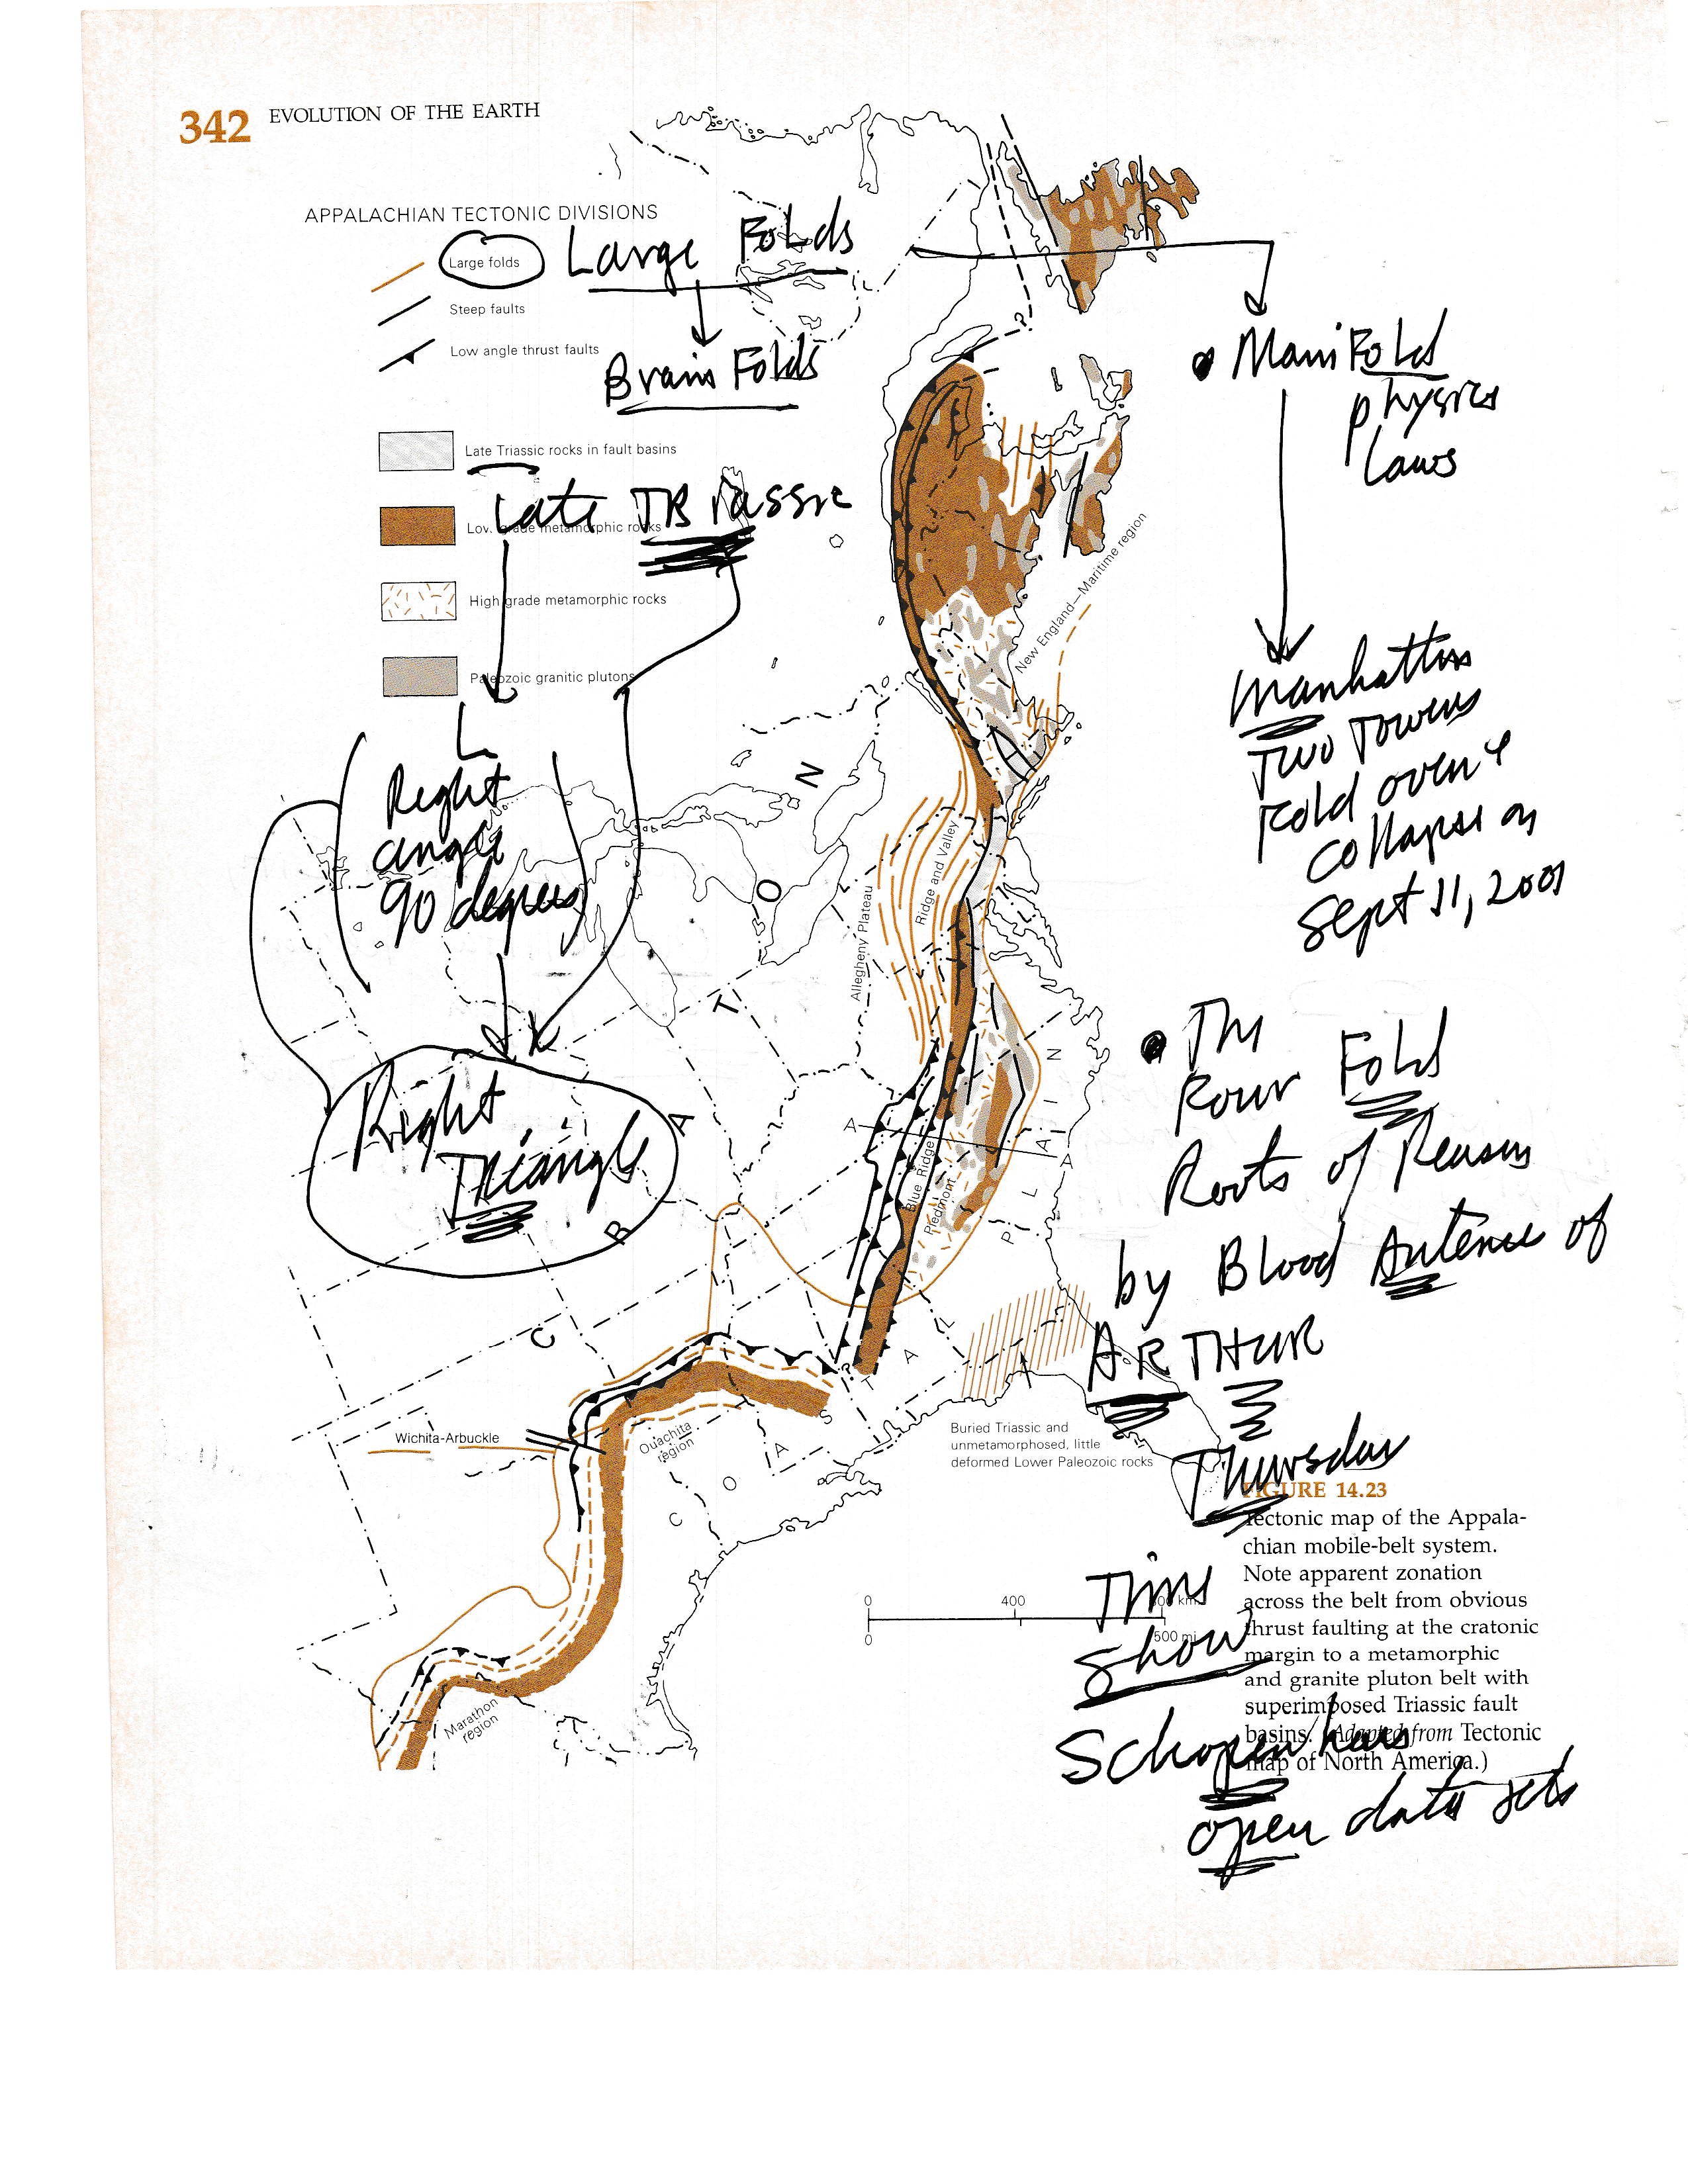 342 EVOLUTION OF THE EARTH
APPALACHIAN TECTONIC DIVISIONS
Large folds
Large Folds
Steep faults
Low angle thrust faults
Brain Folds
Late Triassic rocks in fault basins
Late TRiassic
Low grade metamorphic rocks
High grade metamorphic rocks
Paleozoic granitic plutons
L
Right
angle
90 degrees
Right
TRiangle
ManiFold
physics
laws
Manhattan
Two Towers
Fold over &
collapse on
Sept 11, 2001
The
Four Fold
Roots of Reason
by Blood
of
ARTHUR
Thursday
Time
Show
Schopenhaur
open data sets
New England—Maritime region
Ridge and Valley
Allegheny Plateau
Blue Ridge
Piedmont
A
A
C R A T O N
C O A S T A L P L A I N
?
?
Wichita-Arbuckle
Ouachita
region
Marathon
region
Buried Triassic and
unmetamorphosed, little
deformed Lower Paleozoic rocks
0 400 km
0 500 mi
FIGURE 14.23
Tectonic map of the Appala-
chian mobile-belt system.
Note apparent zonation
across the belt from obvious
thrust faulting at the cratonic
margin to a metamorphic
and granite pluton belt with
superimposed Triassic fault
basins. (Adapted from Tectonic
map of North America.)